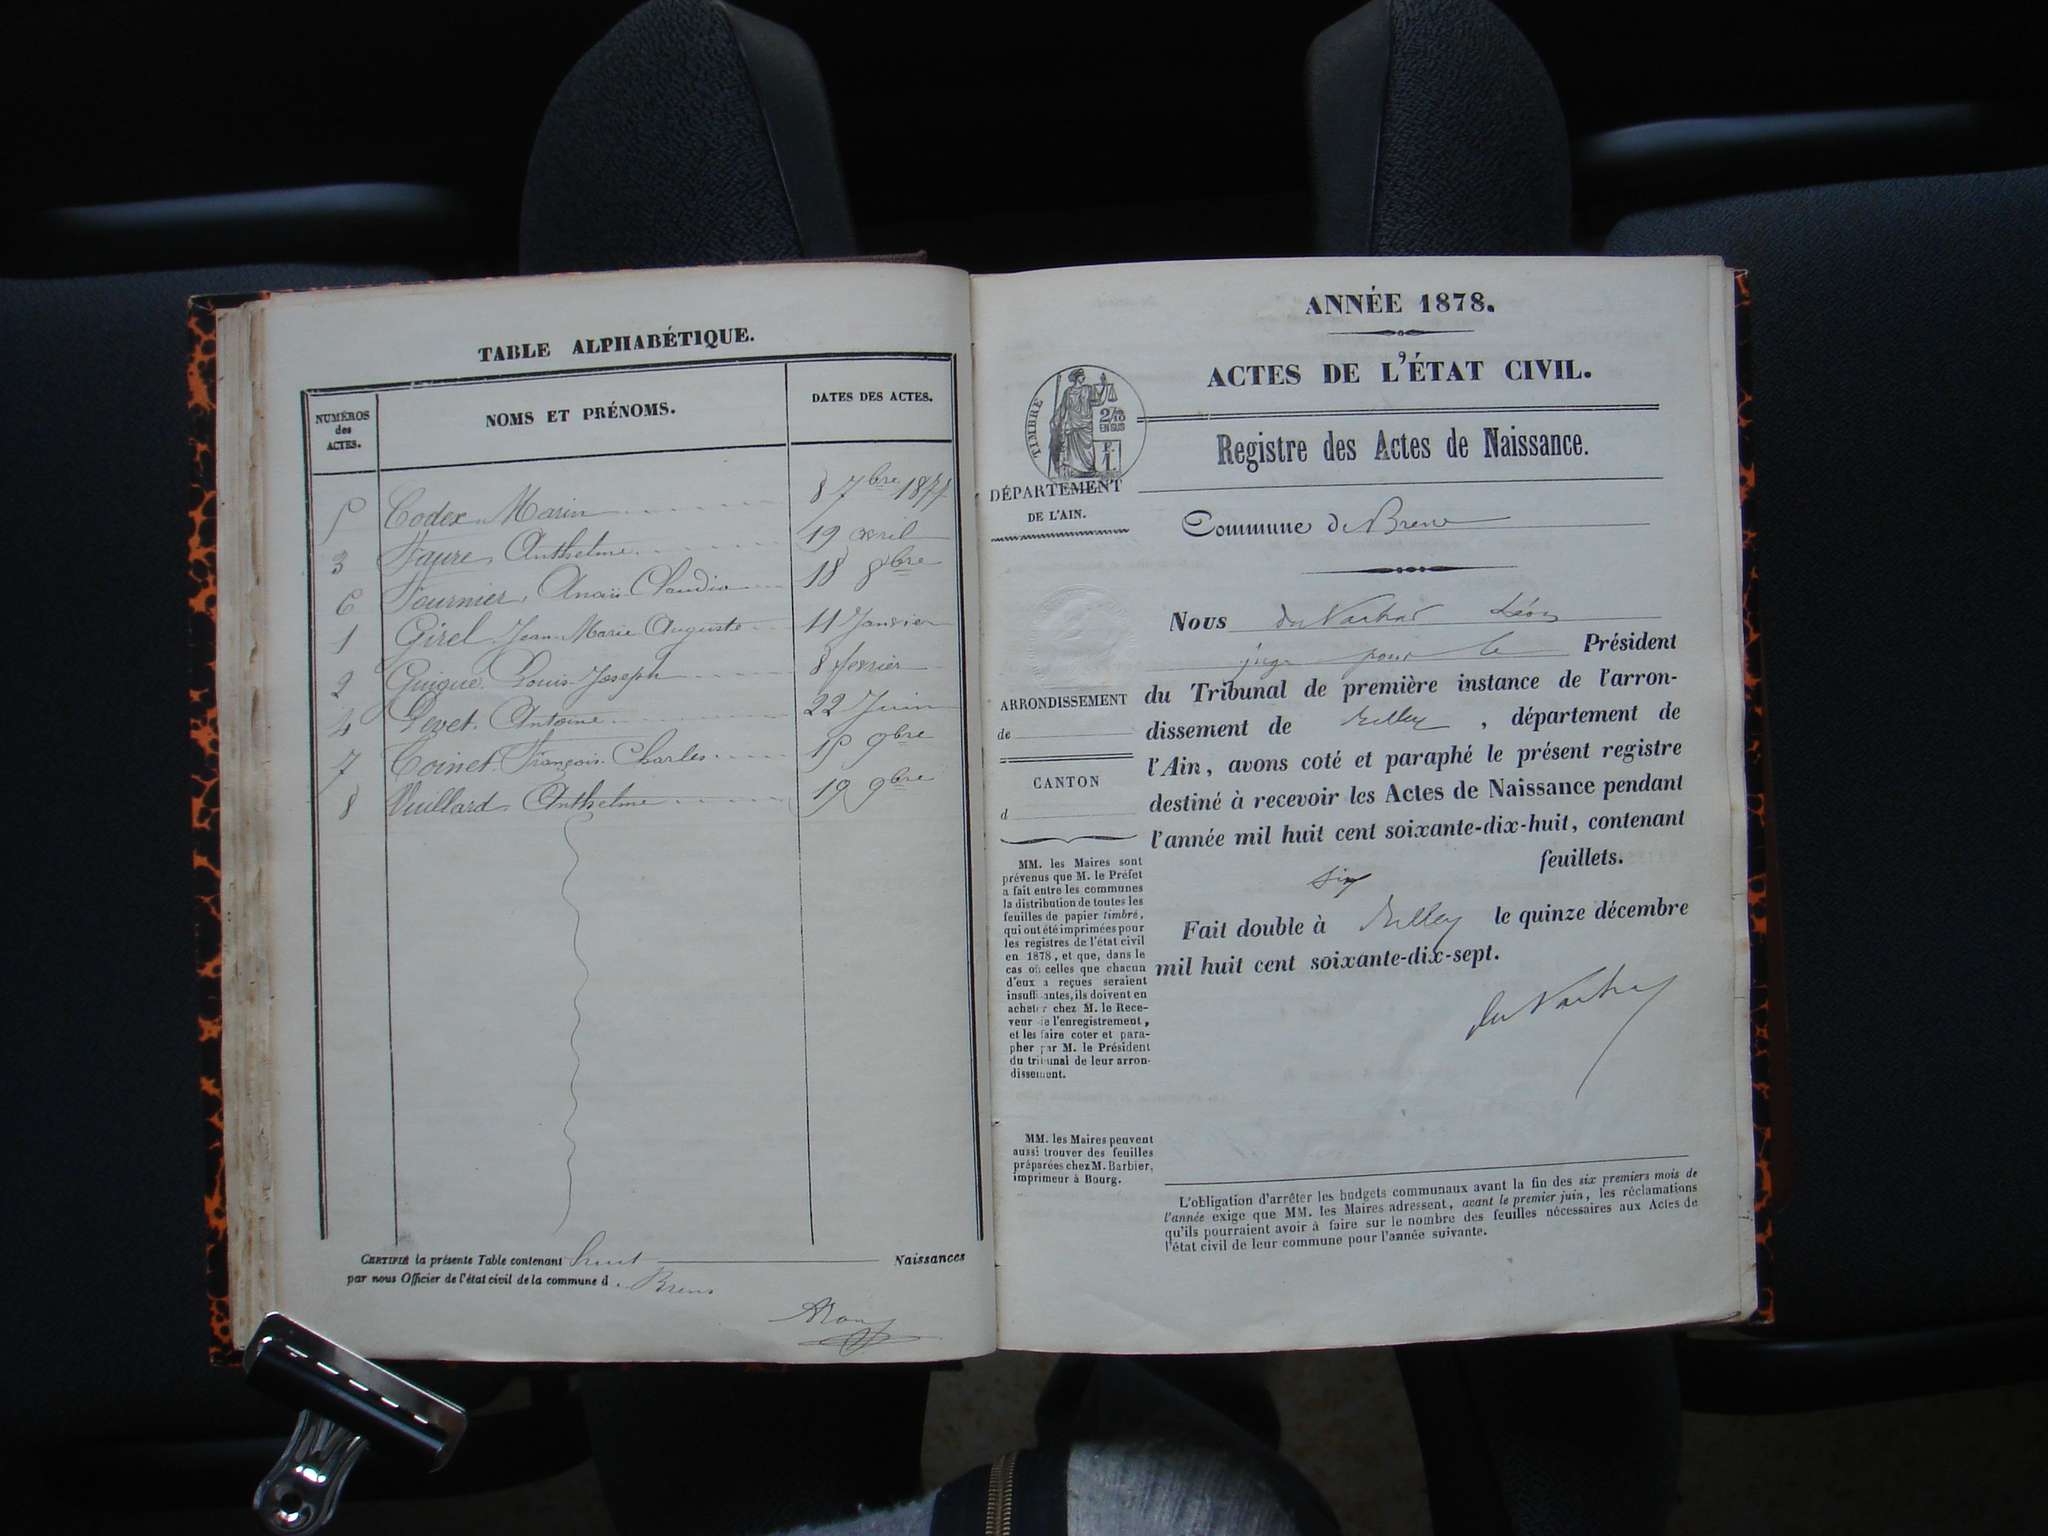 TABLE ALPHABÉTIQUE.
NUMÉROS
des
ACTES.
NOMS ET PRÉNOMS.
DATES DES ACTES.
5 Codex Marin 8 7bre 1877
3 Faure Anthelme 19 avril
6 Fournier Anaïs Claudia 18 8bre
1 Girel Jean Marie Auguste 11 Janvier
2 Guigue Louis Joseph 8 fevrier
4 Levet Antoine 22 Juin
7 Coinet François Charles 15 9bre
8 Vuillard Anthelme 19 9bre
CERTIFIÉ la présente Table contenant huit Naissances
par nous Officier de l'état civil de la commune d Brens
ANNÉE 1878.
ACTES DE L'ÉTAT CIVIL.
TIMBRE
2/10
EN SUS
F.
1.
Registre des Actes de Naissance.
DÉPARTEMENT
DE L'AIN.
Commune de Brens
Nous Léon
juge pour le Président
du Tribunal de première instance de l'arron-
dissement de Belley , département de
l'Ain, avons coté et paraphé le présent registre
destiné à recevoir les Actes de Naissance pendant
l'année mil huit cent soixante-dix-huit, contenant
six feuillets.
Fait double à Belley le quinze décembre
mil huit cent soixante-dix-sept.
ARRONDISSEMENT
de
CANTON
d
MM. les Maires sont
prévenus que M. le Préfet
a fait entre les communes
la distribution de toutes les
feuilles de papier timbré,
qui ont été imprimées pour
les registres de l'état civil
en 1878, et que, dans le
cas où celles que chacun
d'eux a reçues seraient
insuffisantes, ils doivent en
acheter chez M. le Rece-
veur de l'enregistrement,
et les faire coter et para-
pher par M. le Président
du tribunal de leur arron-
dissement.
MM. les Maires peuvent
aussi trouver des feuilles
préparées chez M. Barbier,
imprimeur à Bourg.
L'obligation d'arrêter les budgets communaux avant la fin des six premiers mois de
l'année exige que MM. les Maires adressent, avant le premier juin, les réclamations
qu'ils pourraient avoir à faire sur le nombre des feuilles nécessaires aux Actes de
l'état civil de leur commune pour l'année suivante.